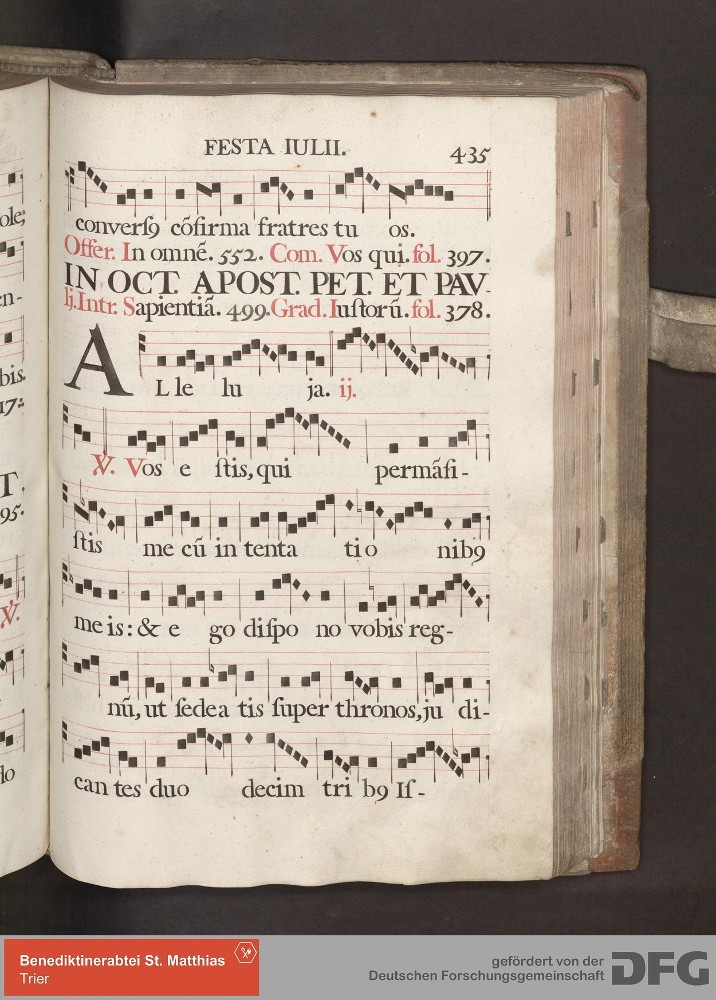 ole;
en-
bis.
17:
T.
95.
℣.
lo
FESTA IULII.
435
conversꝯ cõfirma fratres tu os.
Offer. In omnẽ. 552. Com. Vos qui. fol. 397.
IN OCT. APOST. PET. ET PAV-
lj. Intr. Sapientiã. 499. Grad. Iustorũ. fol. 378.
AL le lu ja. ij.
℣. Vos e ſtis, qui permãſi-
ſtis me cũ in tenta ti o nibꝯ
me is: & e go diſpo no vobis reg-
nũ, ut ſedea tis ſuper thronos, ju di-
can tes duo decim tri bꝯ Iſ-
Benediktinerabtei St. Matthias
Trier
gefördert von der
Deutschen Forschungsgemeinschaft
DFG